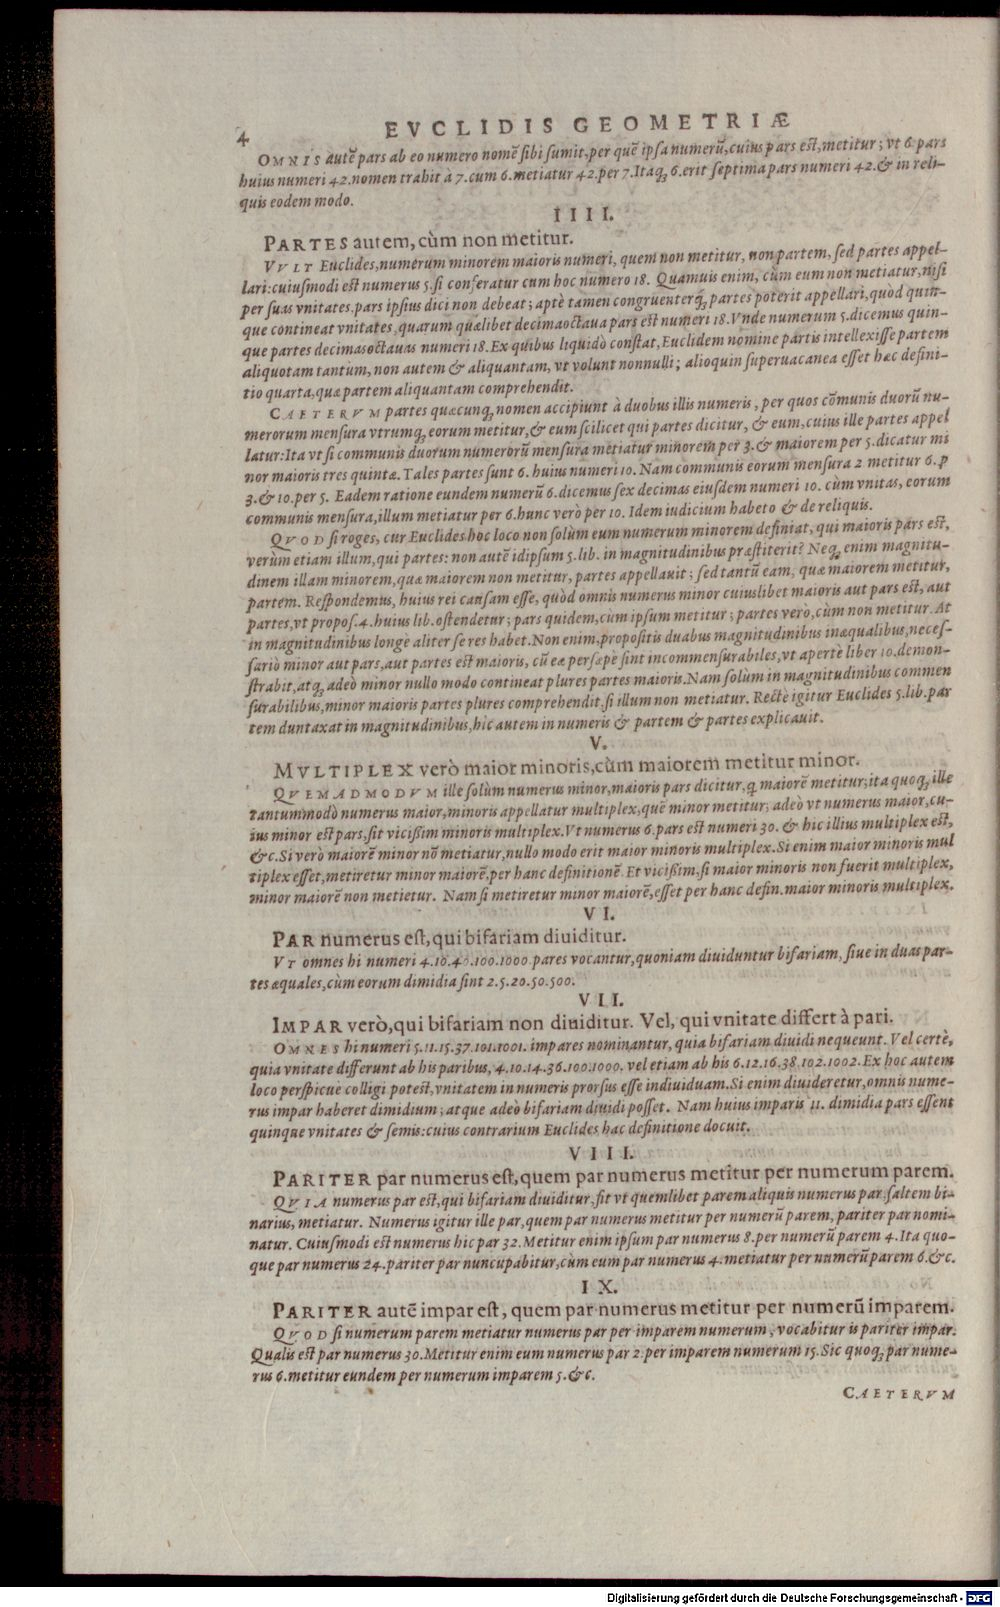 4
EVCLIDIS GEOMETRIÆ
OMNIS autẽ pars ab eo numero nomẽ sibi sumit, per quẽ ipsa numerũ, cuius pars est, metitur; vt 6. pars
huius numeri 42. nomen trahit à 7. cum 6. metiatur 42. per 7. Itaq; 6. erit septima pars numeri 42. & in reli-
quis eodem modo.
IIII.
PARTES autem, cùm non metitur.
VVLT Euclides, numerum minorem maioris numeri, quem non metitur, non partem, sed partes appel-
lari: cuiusmodi est numerus 5. si conferatur cum hoc numero 18. Quamuis enim, cùm eum non metiatur, nisi
per suas vnitates, pars ipsius dici non debeat; aptè tamen congruenterq́; partes poterit appellari, quòd quin-
que contineat vnitates, quarum quælibet decimaoctaua pars est numeri 18. Vnde numerum 5. dicemus quin-
que partes decimasoctauas numeri 18. Ex quibus liquidò constat, Euclidem nomine partis intellexisse partem
aliquotam tantum, non autem & aliquantam, vt volunt nonnulli; alioquin superuacanea esset hæc defini-
tio quarta, quæ partem aliquantam comprehendit.
CAETERVM partes quæcunq; nomen accipiunt à duobus illis numeris, per quos cõmunis duorũ nu-
merorum mensura vtrumq; eorum metitur, & eum scilicet qui partes dicitur, & eum, cuius ille partes appel
latur: Ita vt si communis duorum numerorũ mensura metiatur minorem per 3. & maiorem per 5. dicatur mi
nor maioris tres quintæ. Tales partes sunt 6. huius numeri 10. Nam communis eorum mensura 2 metitur 6. ꝑ
3. & 10. per 5. Eadem ratione eundem numerũ 6. dicemus sex decimas eiusdem numeri 10. cùm vnitas, eorum
communis mensura, illum metiatur per 6. hunc verò per 10. Idem iudicium habeto & de reliquis.
QVOD si roges, cur Euclides hoc loco non solùm eum numerum minorem definiat, qui maioris pars est,
verùm etiam illum, qui partes: non autẽ idipsum 5. lib. in magnitudinibus præstiterit? Neq; enim magnitu-
dinem illam minorem, quæ maiorem non metitur, partes appellauit; sed tantũ eam, quæ maiorem metitur,
partem. Respondemus, huius rei causam esse, quòd omnis numerus minor cuiuslibet maioris aut pars est, aut
partes, vt propos. 4. huius lib. ostendetur; pars quidem, cùm ipsum metitur; partes verò, cùm non metitur. At
in magnitudinibus longè aliter se res habet. Non enim, propositis duabus magnitudinibus inæqualibus, neces-
sariò minor aut pars, aut partes est maioris, cũ eæ persæpè sint incommensurabiles, vt apertè liber 10. demon-
strabit, atq; adeò minor nullo modo contineat plures partes maioris. Nam solùm in magnitudinibus commen
surabilibus, minor maioris partes plures comprehendit, si illum non metiatur. Rectè igitur Euclides 5. lib. par
tem duntaxat in magnitudinibus, hic autem in numeris & partem & partes explicauit.
V.
MVLTIPLEX verò maior minoris, cùm maiorem metitur minor.
QVEMADMODVM ille solùm numerus minor, maioris pars dicitur, ꝗ maiorẽ metitur; ita quoq; ille
tantummodò numerus maior, minoris appellatur multiplex, quẽ minor metitur; adeò vt numerus maior, cu-
ius minor est pars, sit vicißim minoris multiplex. Vt numerus 6. pars est numeri 30. & hic illius multiplex est,
&c. Si verò maiorẽ minor nõ metiatur, nullo modo erit maior minoris multiplex. Si enim maior minoris mul
tiplex esset, metiretur minor maiorẽ, per hanc definitionẽ. Et vicißim, si maior minoris non fuerit multiplex,
minor maiorẽ non metietur. Nam si metiretur minor maiorẽ, esset per hanc defin. maior minoris multiplex.
VI.
PAR numerus est, qui bifariam diuiditur.
VT omnes hi numeri 4. 10. 40. 100. 1000. pares vocantur, quoniam diuiduntur bifariam, siue in duas par-
tes æquales, cùm eorum dimidia sint 2. 5. 20. 50. 500.
VII.
IMPAR verò, qui bifariam non diuiditur. Vel, qui vnitate differt à pari.
OMNES hi numeri 5. 11. 15. 37. 101. 1001. impares nominantur, quia bifariam diuidi nequeunt. Vel certè,
quia vnitate differunt ab his paribus, 4. 10. 14. 36. 100. 1000. vel etiam ab his 6. 12. 16. 38. 102. 1002. Ex hoc autem
loco perspicuè colligi potest, vnitatem in numeris prorsus esse indiuiduam. Si enim diuideretur, omnis nume-
rus impar haberet dimidium; atque adeò bifariam diuidi posset. Nam huius imparis 11. dimidia pars essent
quinque vnitates & semis: cuius contrarium Euclides hac definitione docuit.
VIII.
PARITER par numerus est, quem par numerus metitur per numerum parem.
QVIA numerus par est, qui bifariam diuiditur, fit vt quemlibet parem aliquis numerus par, saltem bi-
narius, metiatur. Numerus igitur ille par, quem par numerus metitur per numerũ parem, pariter par nomi-
natur. Cuiusmodi est numerus hic par 32. Metitur enim ipsum par numerus 8. per numerũ parem 4. Ita quo-
que par numerus 24. pariter par nuncupabitur, cùm eum par numerus 4. metiatur per numerũ parem 6. &c.
IX.
PARITER autẽ impar est, quem par numerus metitur per numerũ imparem.
QVOD si numerum parem metiatur numerus par per imparem numerum, vocabitur is pariter impar.
Qualis est par numerus 30. Metitur enim eum numerus par 2. per imparem numerum 15. Sic quoq; par nume-
rus 6. metitur eundem per numerum imparem 5. &c.
CAETERVM
Digitalisierung gefördert durch die Deutsche Forschungsgemeinschaft - DFG